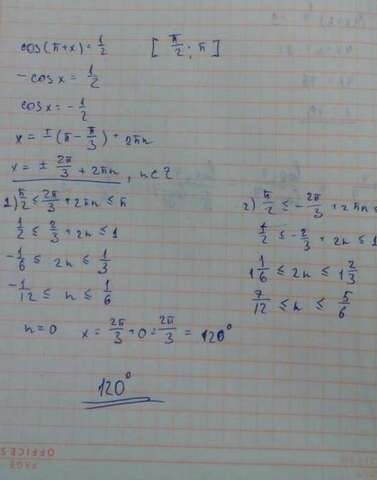 cos(π+x)=1/2 [π/2; π]
-cos x = 1/2
cos x = -1/2
x = ±(π - π/3) + 2πn
x = ± 2π/3 + 2πn, n∈Z
1) π/2 ≤ 2π/3 + 2πn ≤ π
1/2 ≤ 2/3 + 2n ≤ 1
-1/6 ≤ 2n ≤ 1/3
-1/12 ≤ n ≤ 1/6
n=0 x = 2π/3 + 0 = 2π/3 = 120°
2) π/2 ≤ -2π/3 + 2πn ≤
1/2 ≤ -2/3 + 2n ≤ 1
1 1/6 ≤ 2n ≤ 1 2/3
7/12 ≤ n ≤ 5/6
120°
PAGE
OFFICES